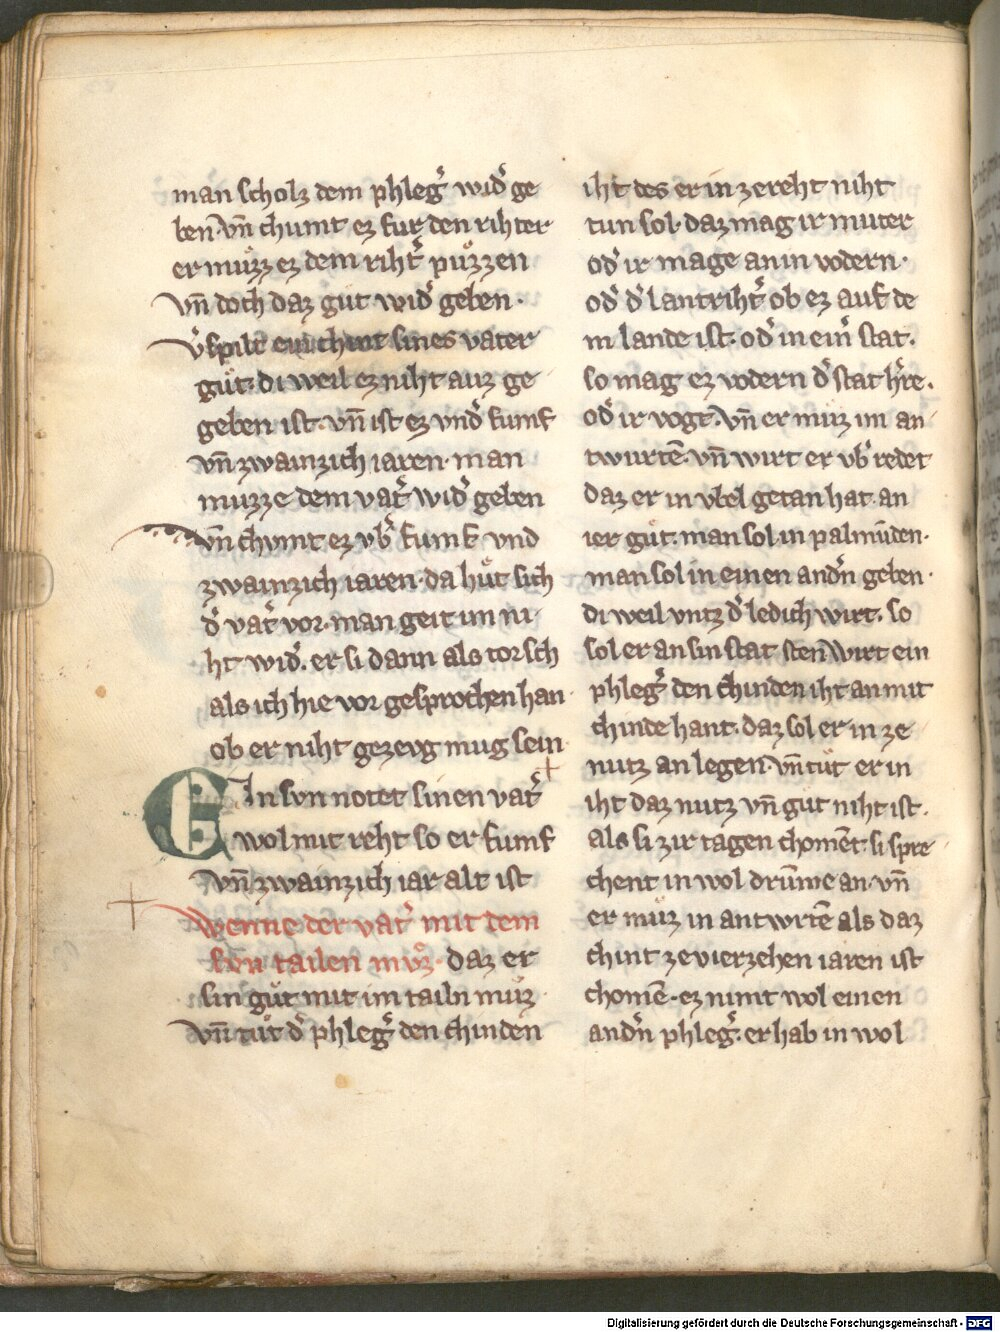 man scholz dem phleg᷑ wid᷑ ge
ben· vn̄ chumt ez fur den rihter
er muͦzz ez dem riht᷑ puͦzzen
vn̄ doch daz guͦt wid᷑ geben·
v᷑spilt ein chint sines vater
guͦt· di weil ez niht auz ge
geben ist· vn̄ ist ez vnd᷑ fumf
vn̄ zwainzich iaren· man
muzze dem vat᷑ wid᷑ geben
vn̄ chvmt ez vb᷑ fumf vnd
zwainzich iaren· da huͤt sich
d᷑ vat᷑ vor· man geit im ni
ht wid᷑· er si dann als torsch
als ich hie vor gesprochen han·
ob er niht gezevg mug sein
EIn svn notet sinen vat᷑
wol mit reht so er fumf
vn̄ zwainzich iar alt ist
Wenne der vat᷑ mit dem
svn tailen mvͦz· daz er
sin guͦt mit im tailn muͦz
vn̄ tuͦt d᷑ phleg᷑ den chinden
iht des er in ze reht niht
tun sol· daz mag ir muter
od᷑ ir mage an in vodern·
od᷑ d᷑ lantriht᷑ ob ez auf de
m lande ist· od᷑ in ein᷑ stat·
so mag ez vodern d᷑ stat h᷑re·
od᷑ ir vogt· vn̄ er muͦz im an
twurtē· vn̄ wirt er vb᷑redet
daz er in vbel getan hat an
ier guͦt· man sol in palmūden·
man sol in einen and᷑n geben·
di weil vntz d᷑ ledich wirt· so
sol er an sin stat sten Wirt ein
phleg᷑ den chinden iht an mit
chinde hant· daz sol er in ze
nutz an legen· vn̄ tuͦt er in
iht daz nutz vn̄ gut niht ist·
als si zir tagen chomēt· si spre
chent in wol drūme an· vn̄
er muͦz in antwrtē als daz
chint ze vierzehen iaren ist
chomē· ez nimt wol einen
and᷑n phleg᷑· er hab in wol
Digitalisierung gefördert durch die Deutsche Forschungsgemeinschaft - DFG